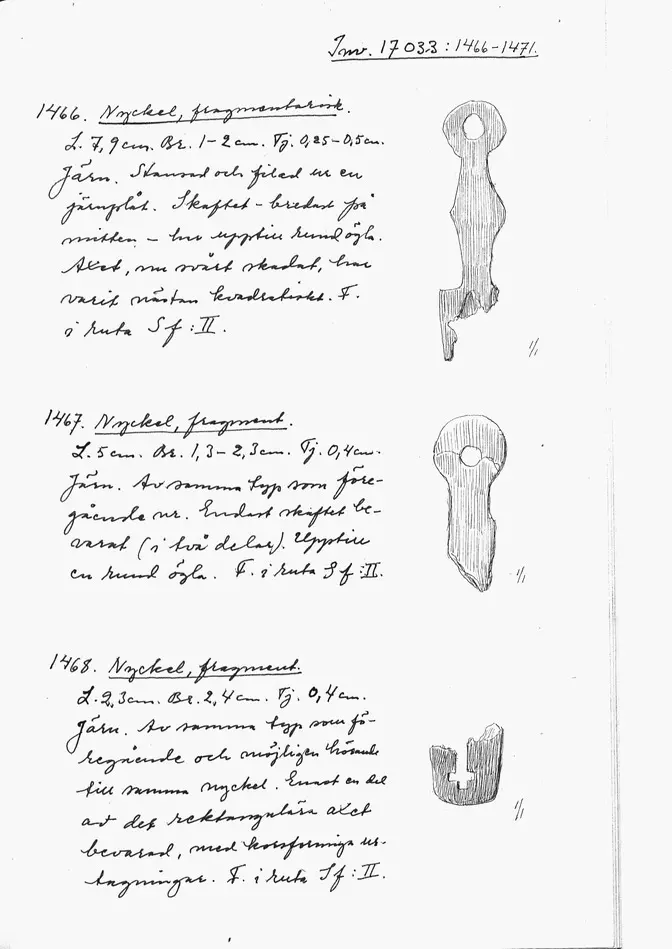 Inv. 17033:1466-1471.
1466. Nyckel, fragmentarisk.
L. 7,9 cm. Br. 1-2 cm. Tj. 0,25-0,5 cm.
Järn. Stansad och filad ur en
järnplåt. Skaftet - bredast på
mitten - har upptill rund ögla.
Axet, nu svårt skadat, har
varit nästan kvadratiskt. F.
i ruta Sf:II.
1/1
1467. Nyckel, fragment.
L. 5 cm. Br. 1,3-2,3 cm. Tj. 0,4 cm.
Järn. Av samma typ som före-
gående nr. Endast skaftet be-
varat (i två delar). Upptill
en rund ögla. F. i ruta Sf:II.
1/1
1468. Nyckel, fragment.
L. 2,3 cm. Br. 2,4 cm. Tj. 0,4 cm.
Järn. Av samma typ som fö-
regående och möjligen hörande
till samma nyckel. Enast en del
av det rektangulära axet
bevarad, med korsformiga ur-
tagningar. F. i ruta Sf:II.
1/1